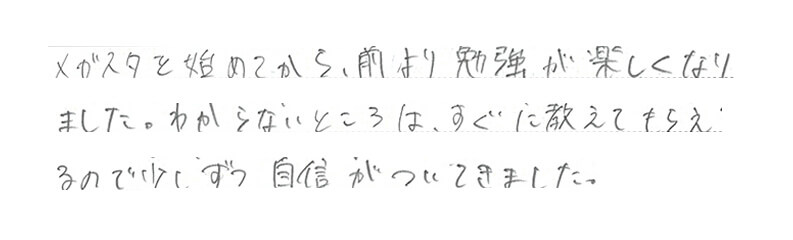 メガスタを始めてから、前より勉強が楽しくなり
ました。わからないところは、すぐに教えてもらえ
るので少しずつ自信がついてきました。